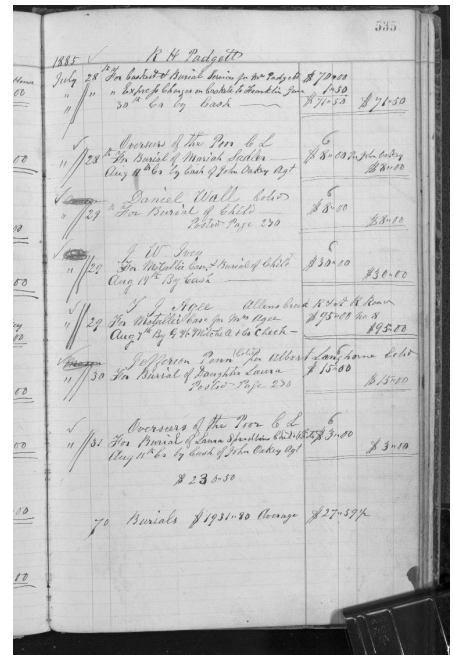 535
1885 R H Padgett
July 28th For Casket & Burial Service for Mr Padgett $70=00
" " " Express Charges on Casket to Franklin June 1=50
30th Cr by Cash $71=50 $71=50
Overseers of the Poor C L 6
" 28th For Burial of Mariah Sadler $8=00 Pr John Oakey
Aug 11th Cr by Cash of John Oakey Agt $8=00
Daniel Wall Cold 6
" 29 " For Burial of Child $8=00
Posted Page 230 $8=00
J W Ivey 6
" 29 " For Metallic Case & Burial of Child $30=00
Aug 19th By Cash $30=00
T J Agee Allens Creek R & A R Road
" 29 For Metallic Case for Mrs Agee $95=00
Aug 7th By Check $95=00
Jefferson Penn Cold for Albert Langhorne Cold
" 30 For Burial of Daughter Laura $15=00
Posted Page 230 $15=00
Overseers of the Poor C L 6
" 31 For Burial of Laura Child $3=00
Aug 11th Cr by Cash of John Oakey Agt $3=00
$230=50
70 Burials $1931=80 Average $27=59
00
00
00